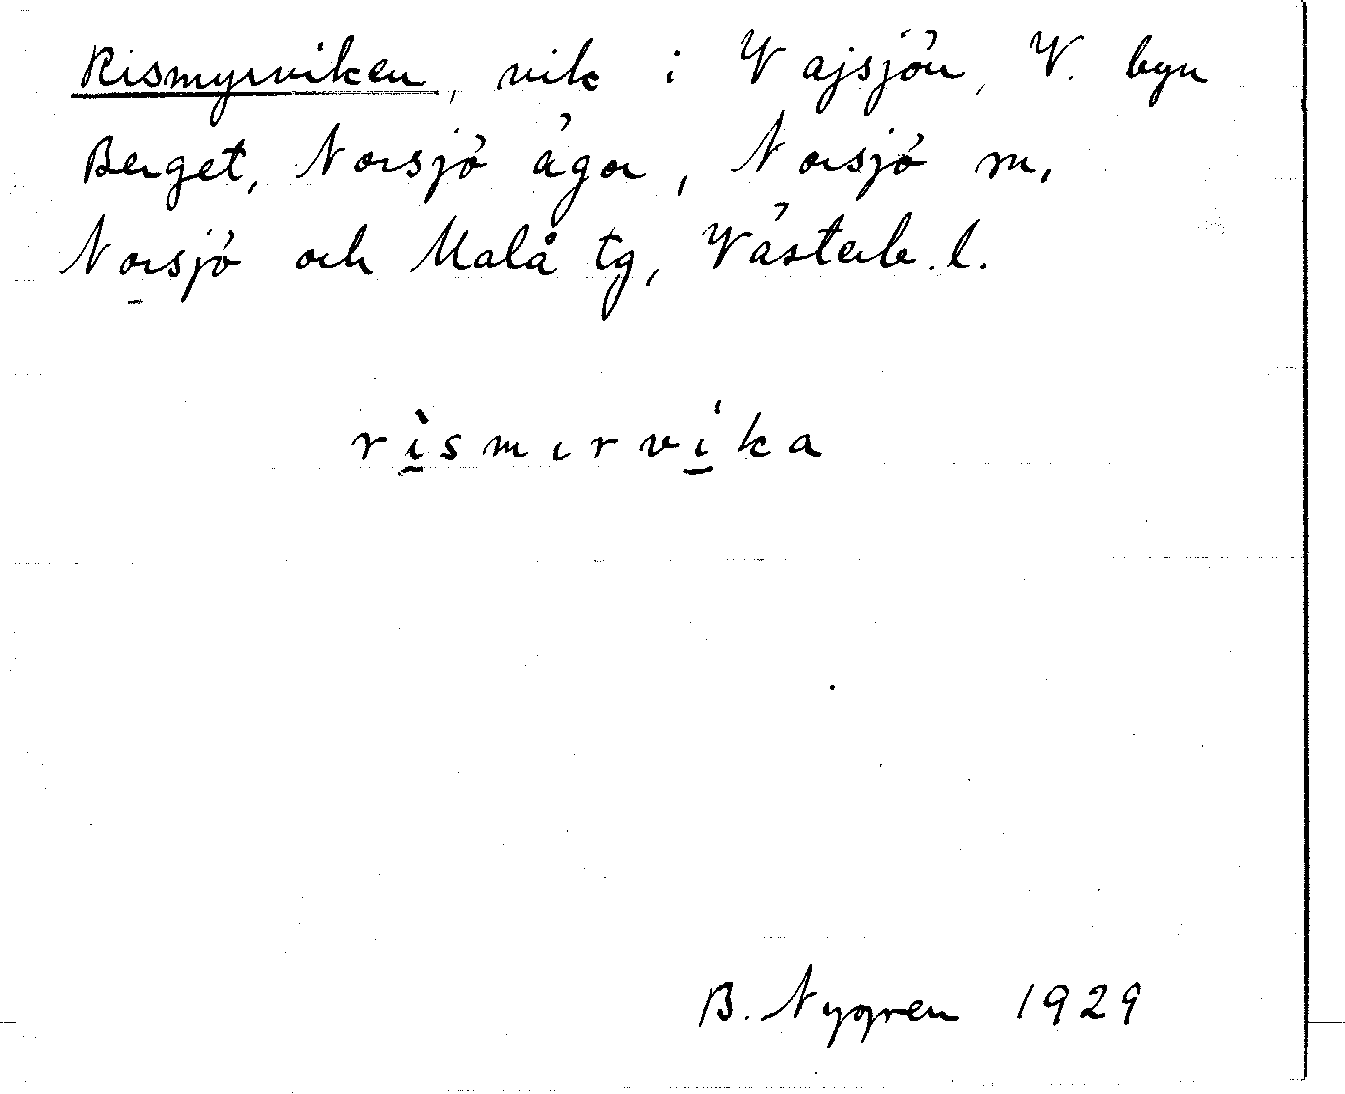 Rismyrviken, vik i Vajsjön, V. byn
Berget, Norsjö ägor, Norsjö sn,
Norsjö och Malå tg, Västerb. l.
rìsmırvíka
B. Nygren 1929